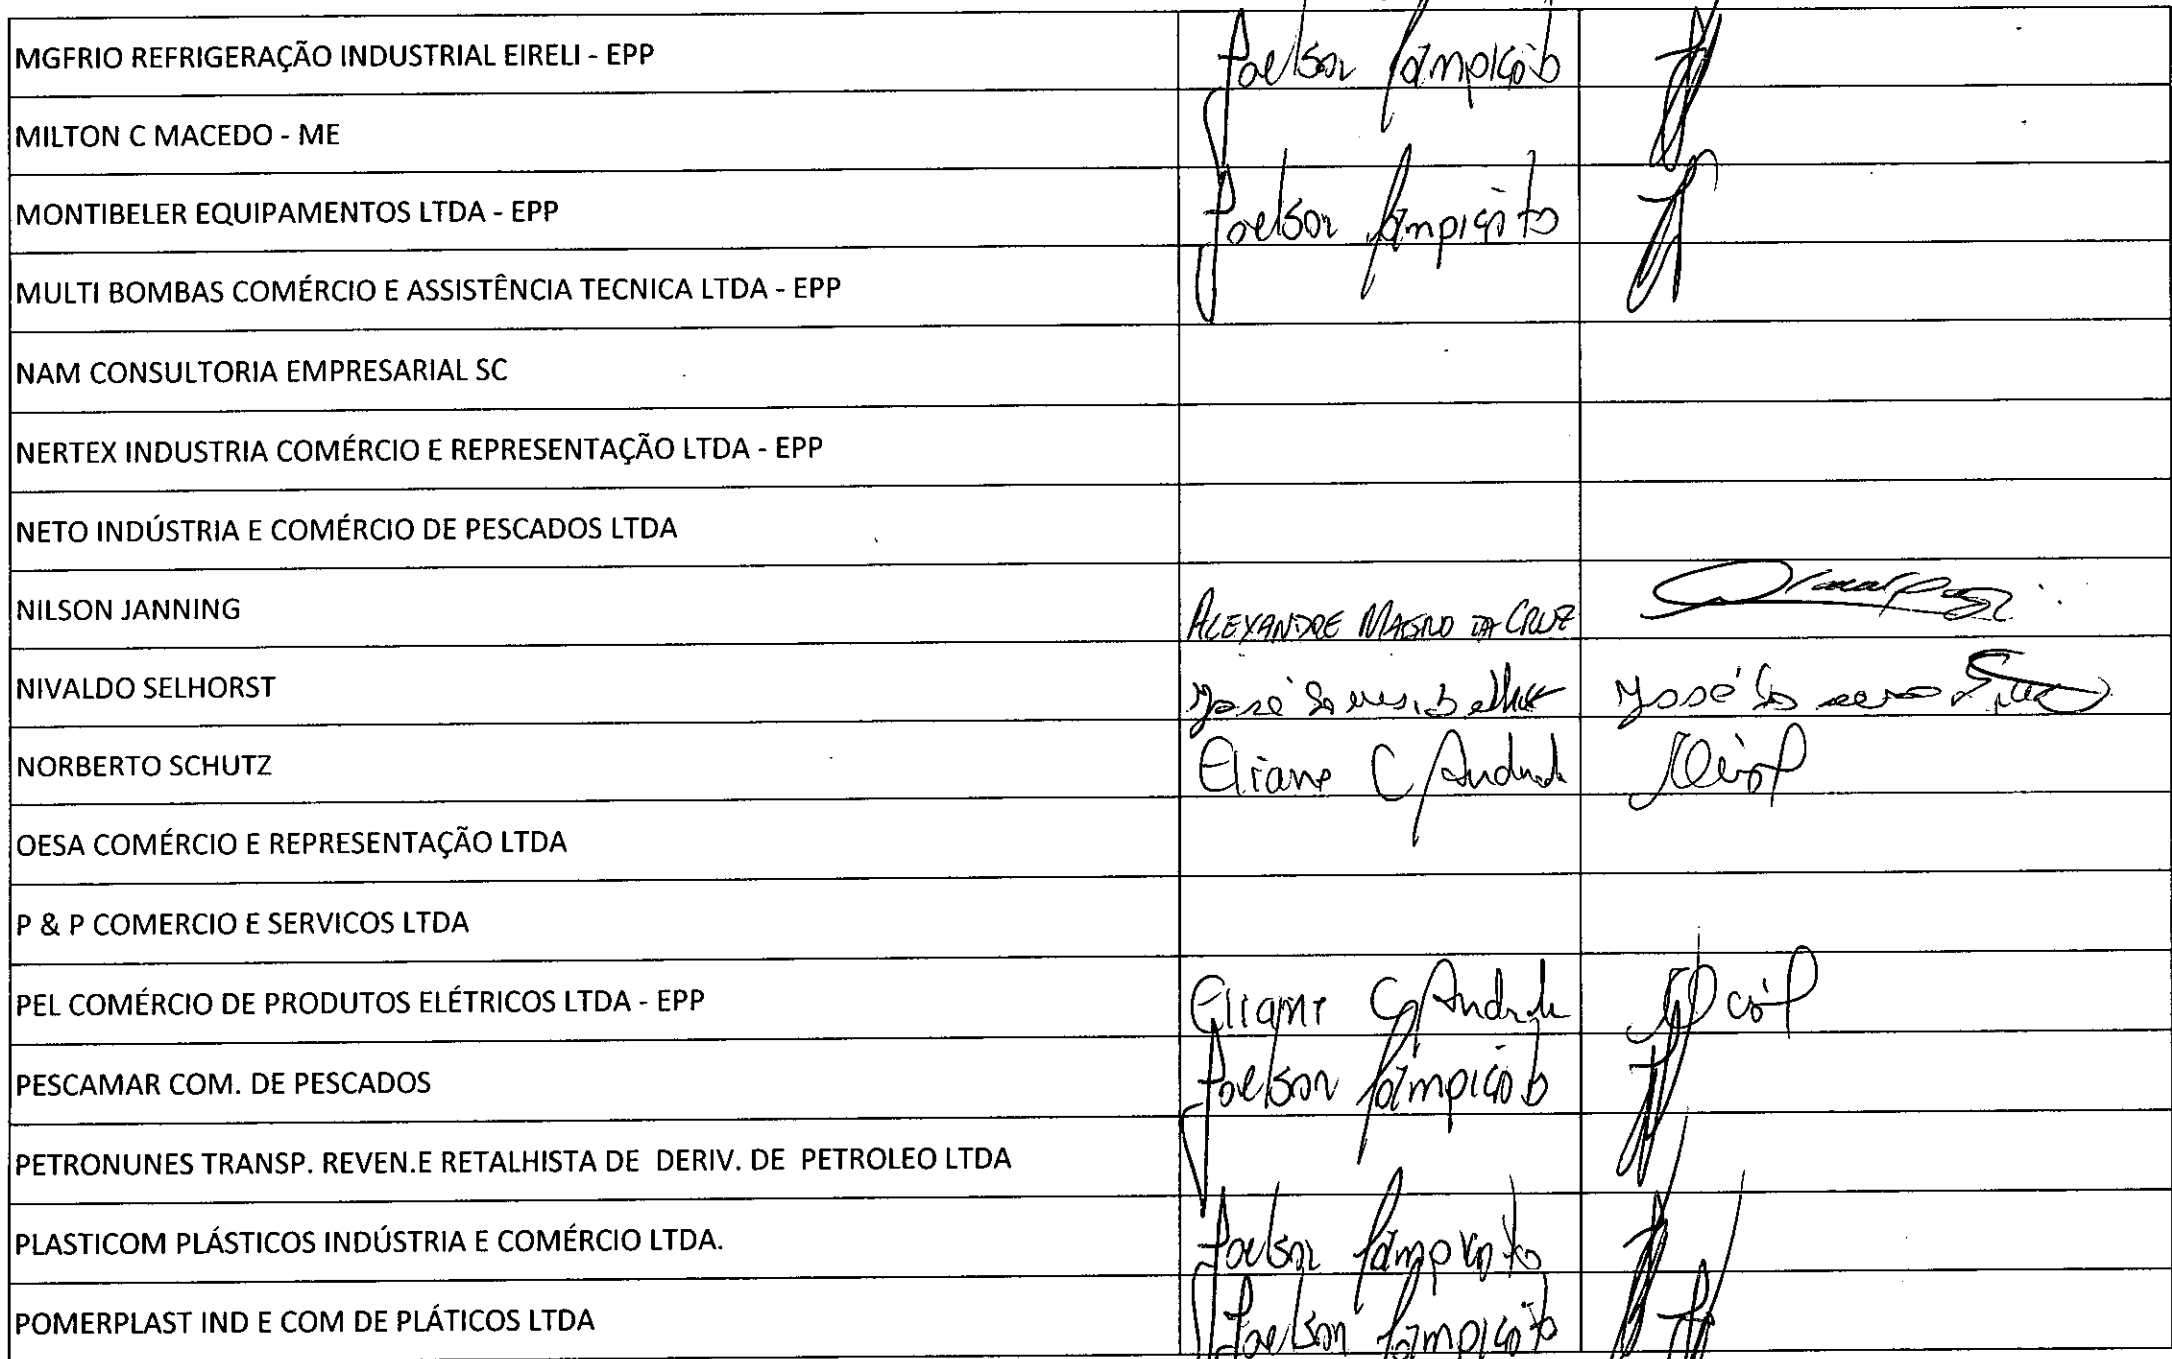 MGFRIO REFRIGERAÇÃO INDUSTRIAL EIRELI - EPP
MILTON C MACEDO - ME
MONTIBELER EQUIPAMENTOS LTDA - EPP
MULTI BOMBAS COMÉRCIO E ASSISTÊNCIA TECNICA LTDA - EPP
NAM CONSULTORIA EMPRESARIAL SC
NERTEX INDUSTRIA COMÉRCIO E REPRESENTAÇÃO LTDA - EPP
NETO INDÚSTRIA E COMÉRCIO DE PESCADOS LTDA
NILSON JANNING ALEXANDRE MAGNO DA CRUZ
NIVALDO SELHORST José
NORBERTO SCHUTZ Eliane C Andrade
OESA COMÉRCIO E REPRESENTAÇÃO LTDA
P & P COMERCIO E SERVICOS LTDA
PEL COMÉRCIO DE PRODUTOS ELÉTRICOS LTDA - EPP Eliane C Andrade
PESCAMAR COM. DE PESCADOS
PETRONUNES TRANSP. REVEN.E RETALHISTA DE DERIV. DE PETROLEO LTDA
PLASTICOM PLÁSTICOS INDÚSTRIA E COMÉRCIO LTDA.
POMERPLAST IND E COM DE PLÁTICOS LTDA